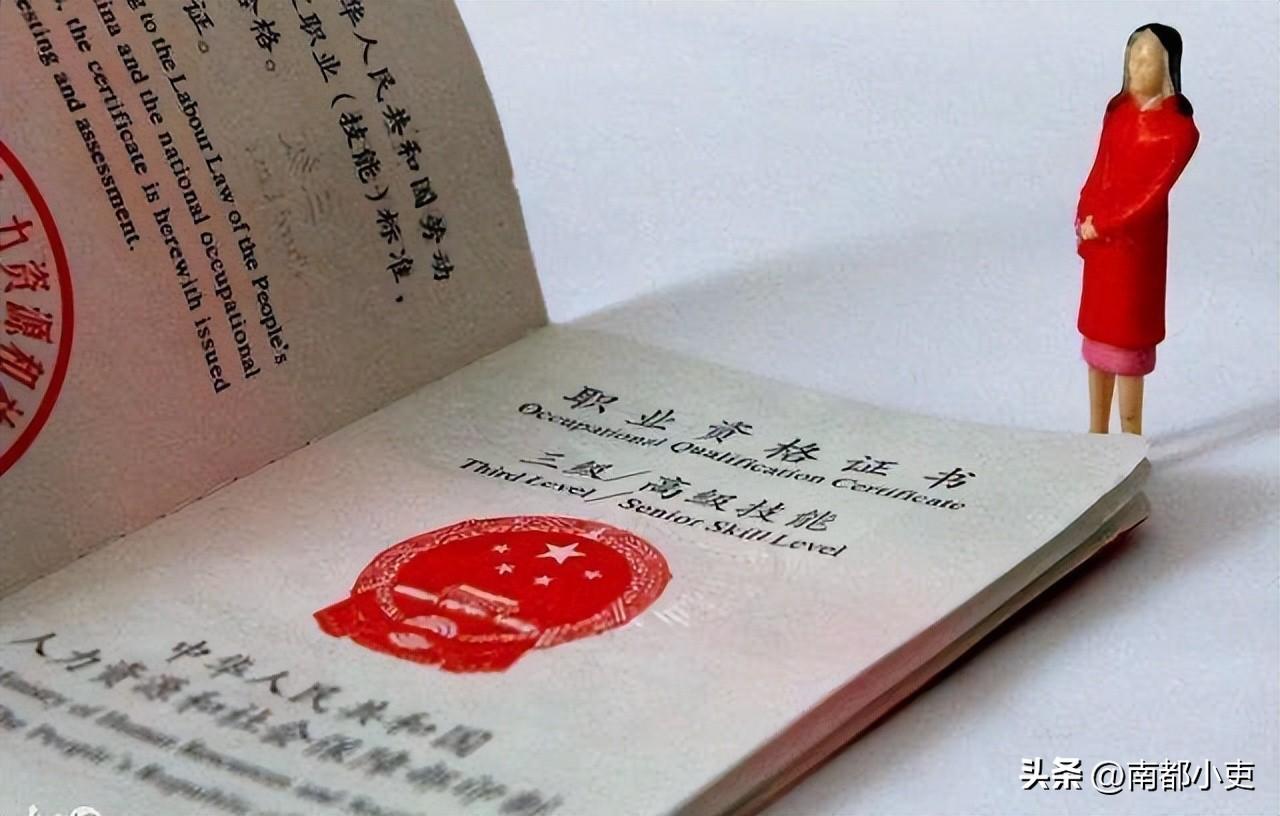 华人民共和国劳动
职业（技能）标准，
格。
证。
to the Labour Law of the People's
and the national occupational
the certificate is herewith issued
and assessment.
力资源和社
职业资格证书
Occupational Qualification Certificate
三级/高级技能
Third Level/Senior Skill Level
中华人民共和国
人力资源和社会保障部印制
头条 @南都小吏